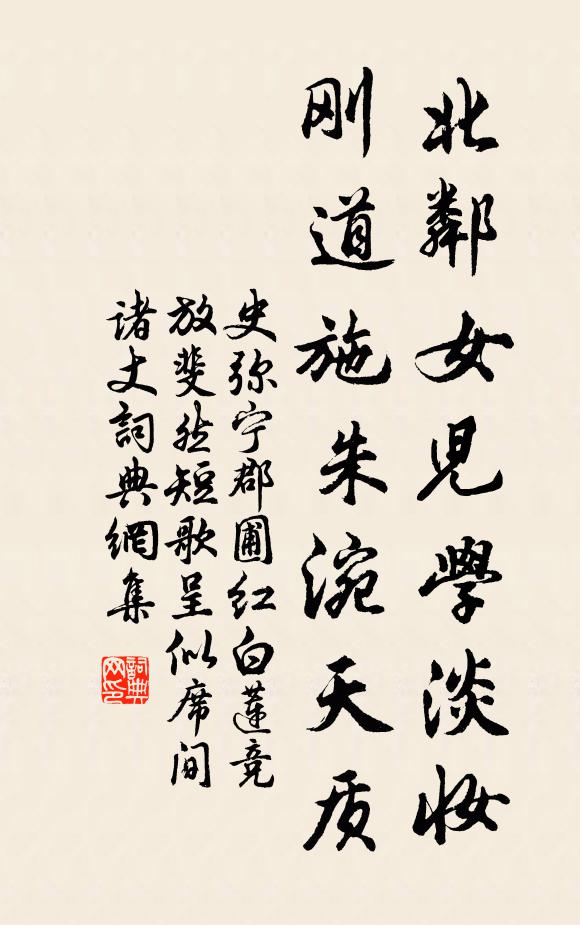 北鄰女兒學淡妝
刚道施朱涴天质
史弥宁郡圃红白蓮竞
放斐然短歌呈似席间
诸丈詞典網集
詞典网印